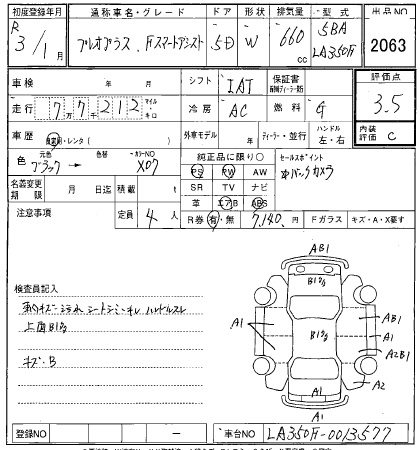 初度登録年月 通称車名・グレード ドア 形状 排気量 型式 出品NO
R 3/1月 プレオプラス. Fスマートアシスト 5D W 660 cc 5BA LA350F 2063
車検 年 月 シフト IAT 保証書 評価点
走行 7万7千212 マイル キロ 冷房 AC 燃料 G 3.5
車歴 自家用・レンタ ( ) 外車モデル 年 ディーラー・並行 ハンドル 左・右 内装評価 C
色 元色 ブラック → 色替 カラーNO X07 純正品に限り○ セールスポイント
PS PW AW バックカメラ
名義変更期限 月 日迄 積載 t SR TV ナビ
革 エアB ABS
注意事項 定員 4人 R券 有・無 7,140.円 Fガラス キズ・A・X要す
検査員記入
シートシミ・キレ ハンドルスレ
上面B18g
キズ・B
AB1
B18g
A1 B18g AB1
A1
A2B1
A1 A2
A1
登録NO 車台NO LA350F-0013577